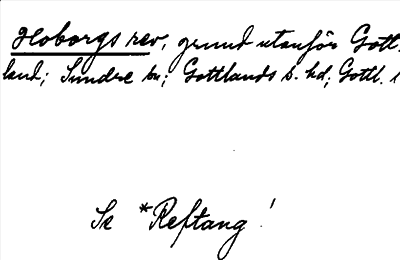 Hoborgs rev, grund utanför Gott-
land; Sundre sn; Gottlands s. hd; Gottl. l
Se *Reftang!